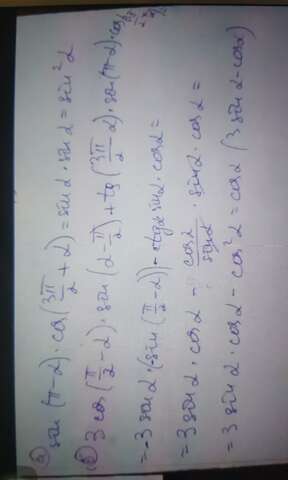 а) sin(π-α)·cos(3π/2+α)=sinα·sinα=sin²α
3cos(π/2-α)·sin(α-π/2)+tg(3π/2-α)·sin(π-α)·cos
=-3sinα·(sin(π/2-α))-ctgα sinα·cosα=
=3sinα·cosα-cosα/sinα·sinα·cosα=
=3sinα·cosα-cos²α=cosα(3sinα-cosα)